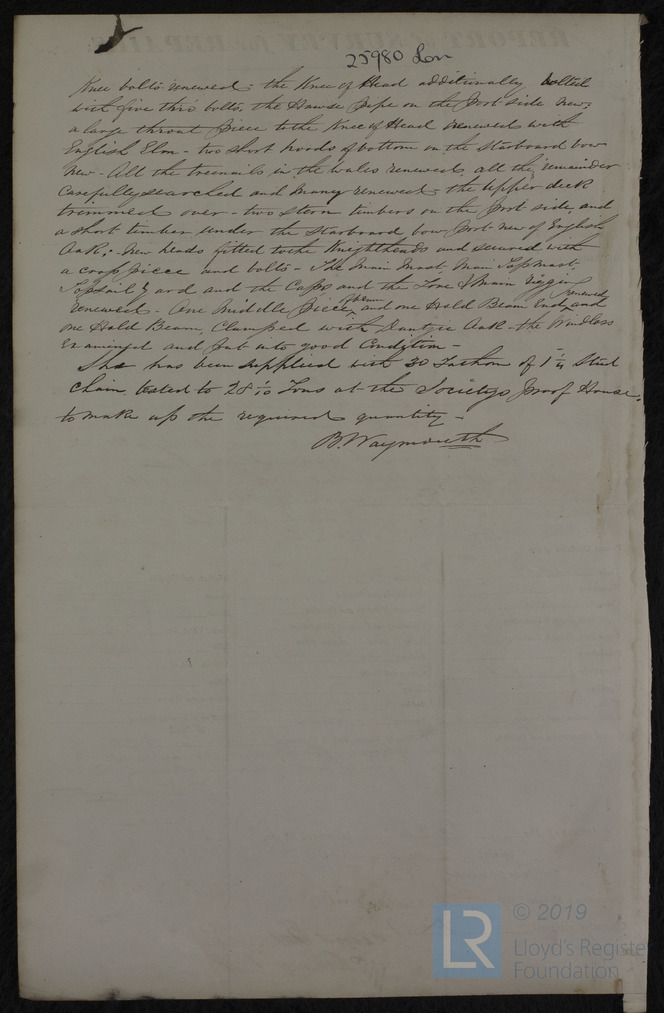 25980 Lon
Knee bolts renewed - the Knee of Head additionally bolted
with five thro' bolts, the Hawse pipe on the Port side new;
a large throat piece to the Knee of Head renewed with
English Elm - two short hoods of bottom on the Starboard bow
new - All the treenails in the wales renewed, all the remainder
Carefully searched and many renewed, the upper deck
trimmed over - two stern timbers on the Port side, and
a short timber under the Starboard bow Port new of English
Oak; - New heads fitted to the Knightheads and secured with
a piece and bolts - The Main Mast, Main Topmast,
Topsail Yard and the Caps and the Fore & Main rigging
renewed - One Middle piece, and one Hold Beam End renewed and
one Hold Beam, Clamped with Oak - the Windlass
Examined and put into good Condition -
She has been supplied with 30 Fathom of 1 1/4 Stud
Chain tested to 28 1/10 Tons at the Societys Proof House,
to make up the required quantity -
B. Waymouth
REPORT of SURVEY for REPAIRS
LR
© 2019
Lloyd's Registe
Foundation